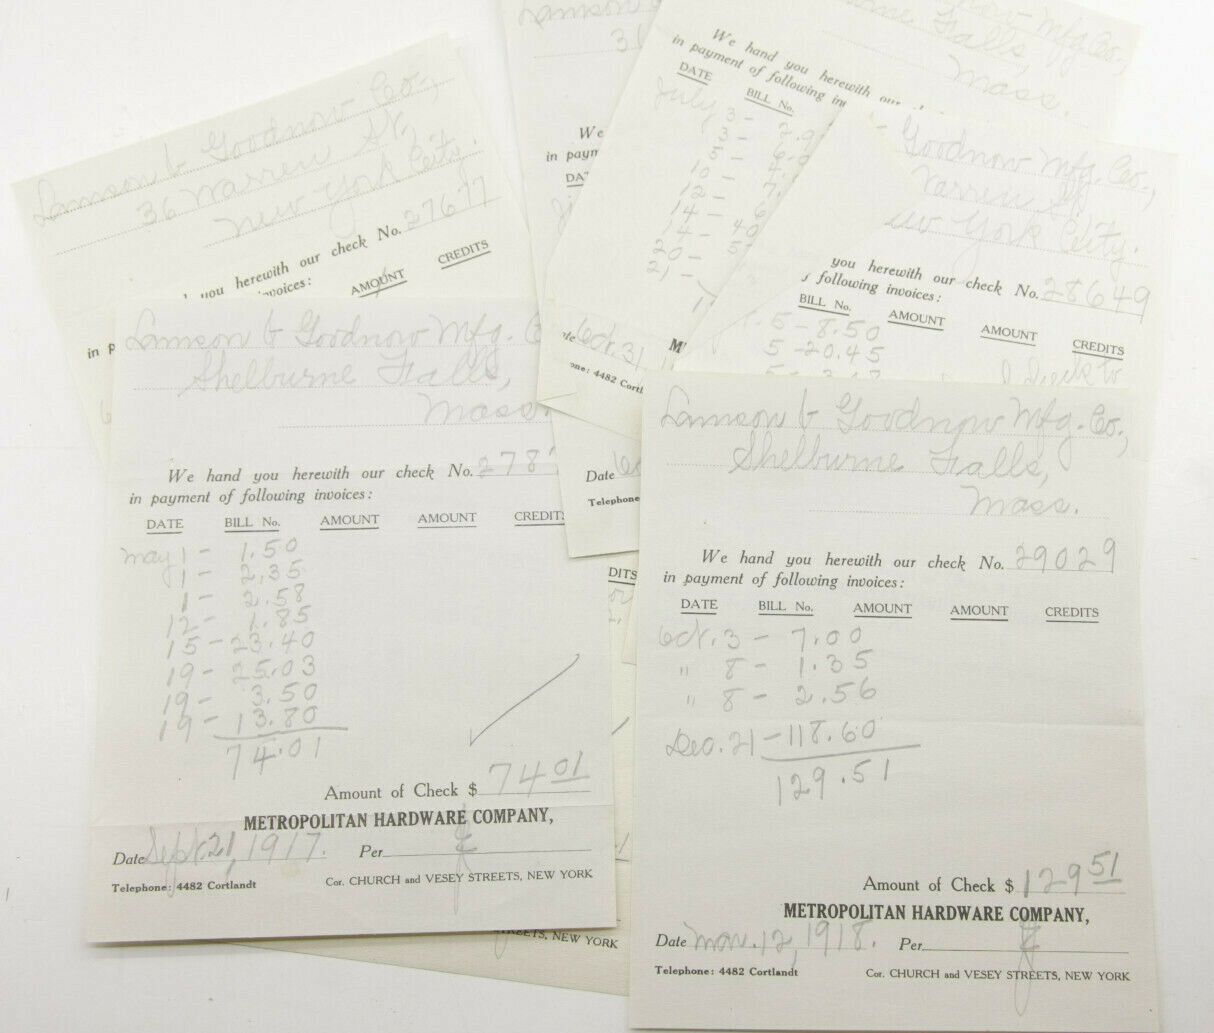 Lamson & Goodnow Co.,
36 Warren St.,
New York City.
you herewith our check No. 27677
invoices:
AMOUNT CREDITS
in p
Lamson &
36
We
in paym
DA
Goodnow Mfg Co.,
Falls,
Mass.
We hand you herewith our
in payment of following inv
DATE BILL No.
July 3 -
3 -
5 -
10 -
12 -
14 -
14 - 40
20 -
21 -
Oct. 31
M
one: 4482 Cortl
Date
Telephone
DITS
Goodnow Mfg. Co.,
Warren St
New York City.
you herewith our check No. 28649
following invoices:
BILL No. AMOUNT AMOUNT CREDITS
5 - 8.50
5 - 20.45
Lamson & Goodnow Mfg. C
Shelburne Falls,
Mass.
We hand you herewith our check No. 278
in payment of following invoices:
DATE BILL No. AMOUNT AMOUNT CREDIT
May 1 - 1.50
1 - 2.35
1 - 2.58
12 - 1.85
15 - 23.40
19 - 25.03
19 - 3.50
19 - 13.80
74.01
Amount of Check $ 74 01
METROPOLITAN HARDWARE COMPANY,
Date Sept. 21, 1917. Per
Telephone: 4482 Cortlandt Cor. CHURCH and VESEY STREETS, NEW YORK
EETS, NEW YORK
Lamson & Goodnow Mfg. Co.,
Shelburne Falls,
Mass.
We hand you herewith our check No. 29029
in payment of following invoices:
DATE BILL No. AMOUNT AMOUNT CREDITS
Oct. 3 - 7.00
" 8 - 1.35
" 8 - 2.56
Dec. 21 - 118.60
129.51
Amount of Check $ 129 51
METROPOLITAN HARDWARE COMPANY,
Date Mar. 12, 1918. Per
Telephone: 4482 Cortlandt Cor. CHURCH and VESEY STREETS, NEW YORK